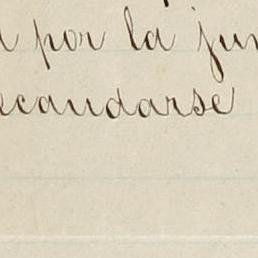 por la
ecaudarse